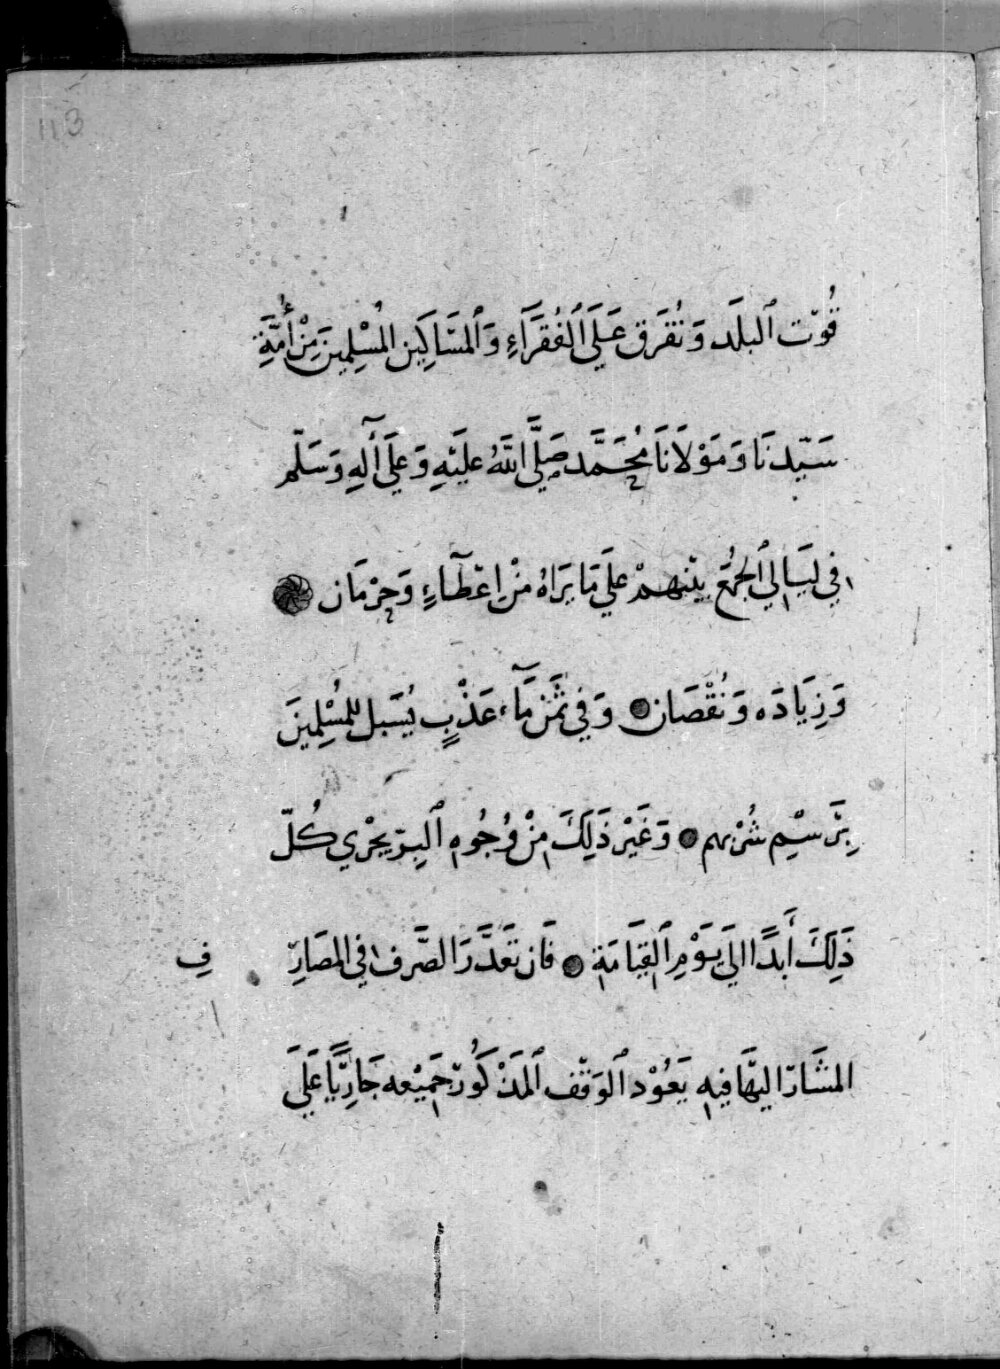 113
قُوْت ٱلبلَد وَتُفَرَق عَلَى ٱلفُقَرَاءِ وَٱلمسَاكِين المُسْلِمِينَ مِنْ أُمَّةِ
سَيّدنَا وَمَوْلَانَا مُحَمَّد صَلَّى اللَّهُ عَلَيْهِ وَعَلَى آلِهِ وَسَلّم
فِي لَيَالِي ٱلجُمَع بيْنهمْ عَلَى مَا يَرَاهُ مِنْ اعْطَآءٍ وَحِرْمَان
وَزِيَادَه وَنُقْصَان وَفِي ثَمَن مَآء عَذْبٍ يُسَبل للمُسْلِمِينَ
بِرَسْمِ شُرْبهم وَغَيْر ذَلِكَ مِنْ وُجُوهِ ٱلبِرّ يجْرِي كُلّ
ذَلِكَ أَبَدًا الَى يَوْمِ ٱلقِيَامَةِ فَان تَعَذَّرَ الصَّرف فِي المصَارِ
فِ
المشَار اليْهَا فِيهِ يَعُوْد ٱلوَقْف ٱلمَذْكُور جَمِيْعه جَارِيًا عَلَى